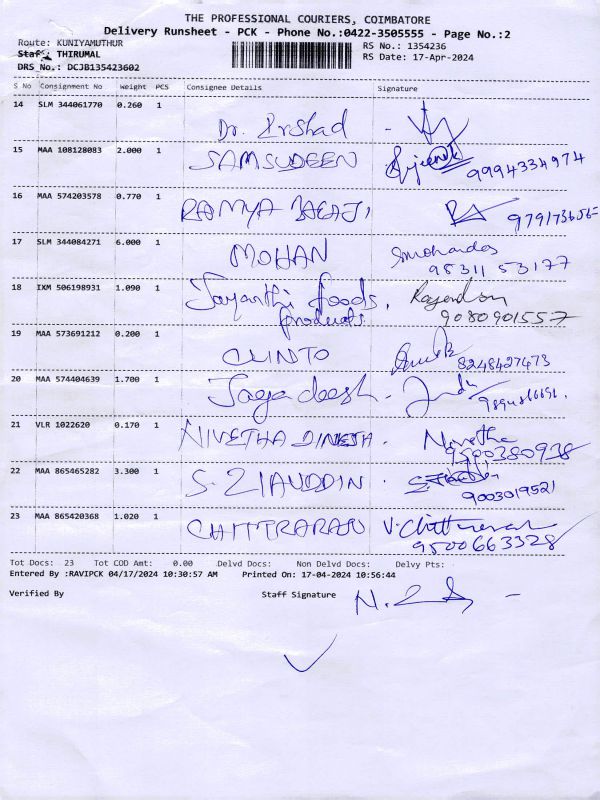 THE PROFESSIONAL COURIERS, COIMBATORE
Delivery Runsheet - PCK - Phone No.:0422-3505555 - Page No.:2
Route: KUNIYAMUTHUR RS No.: 1354236
Staff: THIRUMAL RS Date: 17-Apr-2024
DRS No.: DCJB135423602
S No Consignment No Weight PCS Consignee Details Signature
14 SLM 344061770 0.260 1
Dr. Ershad
15 MAA 108128083 2.000 1
SAMSUDEEN 9994334974
16 MAA 574203578 0.770 1
RAMYA BALAJI
17 SLM 344084271 6.000 1
MOHAN Smohandas
95311 53177
18 IXM 506198931 1.090 1
Jayanthi foods. Rajendran
products 9080901557
19 MAA 573691212 0.200 1
CLINTO 8248427473
20 MAA 574404639 1.700 1
Jagadeesh.
21 VLR 1022620 0.170 1
NIVETHA DINESH. Nivetha
9500380938
22 MAA 865465282 3.300 1
S. ZIAUDDIN.
9003019521
23 MAA 865420368 1.020 1
CHITTRARAN V. Chittraran
9500663328
Tot Docs: 23 Tot COD Amt: 0.00 Delvd Docs: Non Delvd Docs: Delvy Pts:
Entered By :RAVIPCK 04/17/2024 10:30:57 AM Printed On: 17-04-2024 10:56:44
Verified By Staff Signature